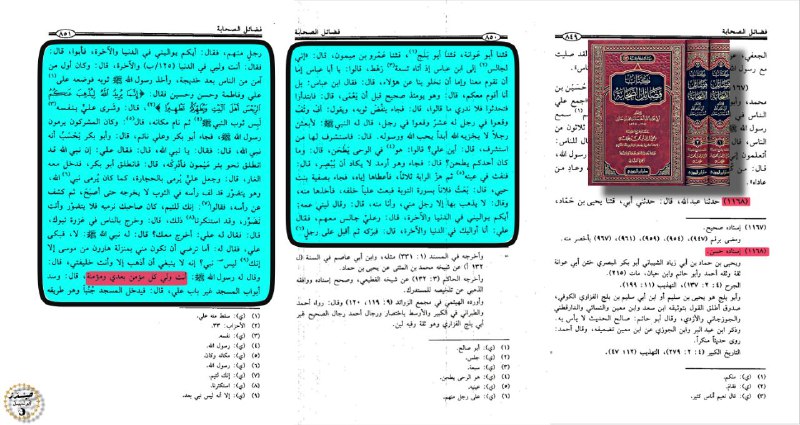 فضائل الصحابة
٨٤٩
(١١٦٨) حدثنا عبد الله، قال: حدثني أبي، قثنا يحيى بن حماد،
(١١٦٧) إسناده صحيح.
ومضى برقم (٩٤٧)، (٩٥٤)، (٩٥٩)، (٩٦١)، (٩٦٧) بأخصر منه.
(١١٦٨) إسناده حسن.
ويحيى بن حماد بن أبي زياد الشيباني أبو بكر البصري ختن أبي عوانة
ثقة وثقه أحمد وأبو حاتم وابن حبان، مات (٢١٥)
الجرح (٤: ٢: ١٣٧)، التهذيب (١١: ١٩٩).
وأبو بلج هو يحيى بن سليم أو ابن أبي سليم بن بلج الفزاري الكوفي،
صدوق أطلق القول بتوثيقه ابن سعد وابن معين والنسائي والدارقطني
والجوزجاني والأزدي، وقال أبو حاتم: صالح الحديث لا بأس به.
وذكر ابن عبد البر وابن الجوزي عن ابن معين تضعيفه، وقال أحمد:
روى حديثاً منكراً.
التاريخ الكبير (٤: ٢: ٢٧٩)، التهذيب (١٢: ٤٧).
(١) (ي): منكم.
(٣) (ي): قال نعيم أناس كثير.
٨٥٠
فضائل الصحابة
قثنا أبو عوانة، قثنا أبو بلج، قثنا عمرو بن ميمون، قال: إني
لجالس إلى ابن عباس إذ أتاه تسعة رهط، قالوا: يا أبا عباس إما
أن تقوم معنا وإما أن تخلو بنا عن هؤلاء، قال: فقال ابن عباس: بل
أنا أقوم معكم، قال: وهو يومئذ صحيح قبل أن يعمى، قال: فابتدأوا
فتحدثوا فلا ندري ما قالوا، قال: فجاء ينفض ثوبه، ويقول: أف وتف
وقعوا في رجل له عشر وقعوا في رجل، قال له النبي ﷺ: لأبعثن
رجلاً لا يخزيه الله أبداً يحب الله ورسوله. قال: فاستشرف لها من
استشرف، قال: أين علي؟ قالوا: هو في الرحى يطحن، قال: وما
كان أحدكم يطحن؟ قال: فجاء وهو أرمد لا يكاد أن يبصر، قال:
فنفث في عينه ثم هز الراية ثلاثاً، فأعطاها إياه، فجاء بصفية بنت
حيي، قال: ثم بعث فلاناً بسورة التوبة فبعث علياً خلفه، فأخذها منه،
وقال: لا يذهب بها إلا رجل مني وأنا منه، قال: وقال لبني عمه:
أيكم يواليني في الدنيا والآخرة، قال: وعلي جالس معهم، فقال
علي: أنا أواليك في الدنيا والآخرة، قال: فتركه ثم أقبل على رجل
وأخرجه في المسند (١: ٣٣١) مثله، وابن أبي عاصم في السنة (ل
١٣٢ أ) عن شيخه محمد بن المثنى عن يحيى بن حماد.
وأخرجه الحاكم (٣: ١٣٢) عن شيخه القطيعي، وصححه هو
الذهبي عن تلخيصه للمستدرك.
وأورده الهيثمي في مجمع الزوائد (٩: ١١٩، ١٢٠) وقال: رواه أحمد
والطبراني في الكبير والأوسط باختصار ورجال أحمد رجال الصحيح غير
أبي بلج الفزاري وهو ثقة وفيه لين.
(١) (ي): أبو صالح.
(٢) (ي): جلس.
(٣) (ي): سبعة.
(٤) (ي): هو الرحى يطحن.
(٥) (ي): عينيه.
(٦) (ي): على رجل منهم.
٨٥١
فضائل الصحابة
رجل منهم، فقال: أيكم يواليني في الدنيا والآخرة، فأبوا، قال:
فقال: أنت وليي في الدنيا والآخرة، (١٢٥/ب) قال: وكان أول من
آمن من الناس بعد خديجة، وأخذ رسول الله ﷺ ثوبه فوضعه على
علي وفاطمة وحسن وحسين فقال: ﴿إنما يريد الله ليذهب عنكم
الرجس أهل البيت ويطهركم تطهيراً﴾ قال: وشرى علي بنفسه
لبس ثوب النبي ﷺ ثم نام مكانه، قال: وكان المشركون يرمون
رسول الله ﷺ، فجاء أبو بكر وعلي نائم، قال: وأبو بكر يحسب أنه
نبي الله، قال: فقال: يا نبي الله، قال: فقال علي: إن نبي الله قد
انطلق نحو بئر ميمون فأدركه، قال: فانطلق أبو بكر، فدخل معه
الغار، قال: وجعل علي يرمى بالحجارة، كما كان يرمى نبي الله
وهو يتضور قد لف رأسه في الثوب لا يخرجه حتى أصبح، ثم كشف
عن رأسه، فقالوا: إنك للئيم، كان صاحبك نرميه فلا يتضور وأنت
تضور، وقد استنكرنا ذلك، قال: وخرج بالناس في غزوة تبوك،
قال: فقال له علي: أخرج معك؟ قال: فقال له نبي الله: لا، فبكى
علي، فقال له: أما ترضى أن تكون مني بمنزلة هارون من موسى إلا
إنك ليس نبي؟ إنه لا ينبغي أن أذهب إلا وأنت خليفتي، قال:
وقال له رسول الله ﷺ أنت ولي كل مؤمن بعدي ومؤمنة، قال: وسد
أبواب المسجد غير باب علي، قال: فيدخل المسجد جنباً وهو طريقه
(١) (ي): سقط منه علي.
(٢) الأحزاب: ٣٣.
(٣) (ي): نفسه.
(٤) (ي): رسول الله.
(٥) (ي): مكانه وكان.
(٦) (ي): رسول الله.
(٧) (ي): إنك لئيم.
(٨) (ي): استنكرنا.
(٩) (ي): إلا أنه ليس نبي بعد.